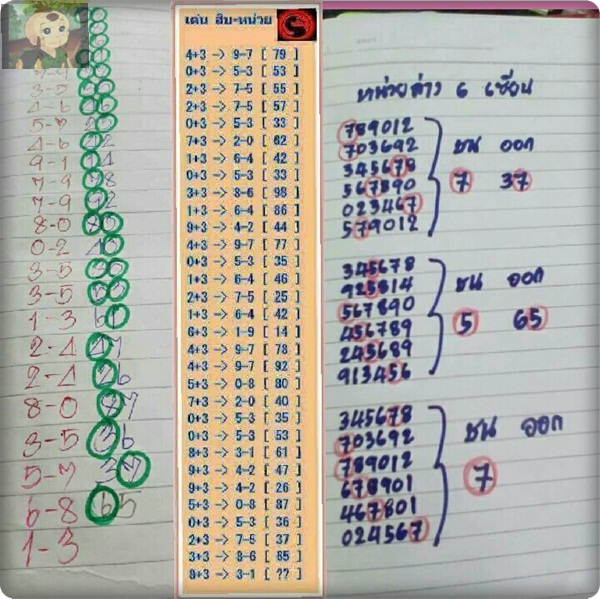 3-5
5-7
4-6
9-1
7-9
7-9
8-0
0-2
3-5
3-5
1-3
2-4
2-4
8-0
3-5 36
5-7 37
6-8 65
1-3
เด่น สิบ-หน่วย
4+3 -> 9-7 [ 79 ]
0+3 -> 5-3 [ 53 ]
2+3 -> 7-5 [ 55 ]
2+3 -> 7-5 [ 57 ]
0+3 -> 5-3 [ 33 ]
7+3 -> 2-0 [ 62 ]
1+3 -> 6-4 [ 42 ]
0+3 -> 5-3 [ 33 ]
3+3 -> 8-6 [ 98 ]
1+3 -> 6-4 [ 86 ]
9+3 -> 4-2 [ 44 ]
4+3 -> 9-7 [ 77 ]
0+3 -> 5-3 [ 35 ]
1+3 -> 6-4 [ 46 ]
2+3 -> 7-5 [ 25 ]
1+3 -> 6-4 [ 42 ]
6+3 -> 1-9 [ 14 ]
4+3 -> 9-7 [ 78 ]
4+3 -> 9-7 [ 92 ]
5+3 -> 0-8 [ 80 ]
7+3 -> 2-0 [ 40 ]
0+3 -> 5-3 [ 35 ]
0+3 -> 5-3 [ 53 ]
8+3 -> 3-1 [ 61 ]
9+3 -> 4-2 [ 47 ]
9+3 -> 4-2 [ 26 ]
5+3 -> 0-8 [ 87 ]
0+3 -> 5-3 [ 36 ]
2+3 -> 7-5 [ 37 ]
3+3 -> 8-6 [ 65 ]
8+3 -> 3-1 [ ?? ]
หน่วยล่าง 6 เซียน
789012
703692
345678 ชน ออก
567890 7 37
023467
579012
345678
925814 ชน ออก
567890
456789 5 65
245689
913456
345678 ชน ออก
703692
789012 7
678901
467801
024567